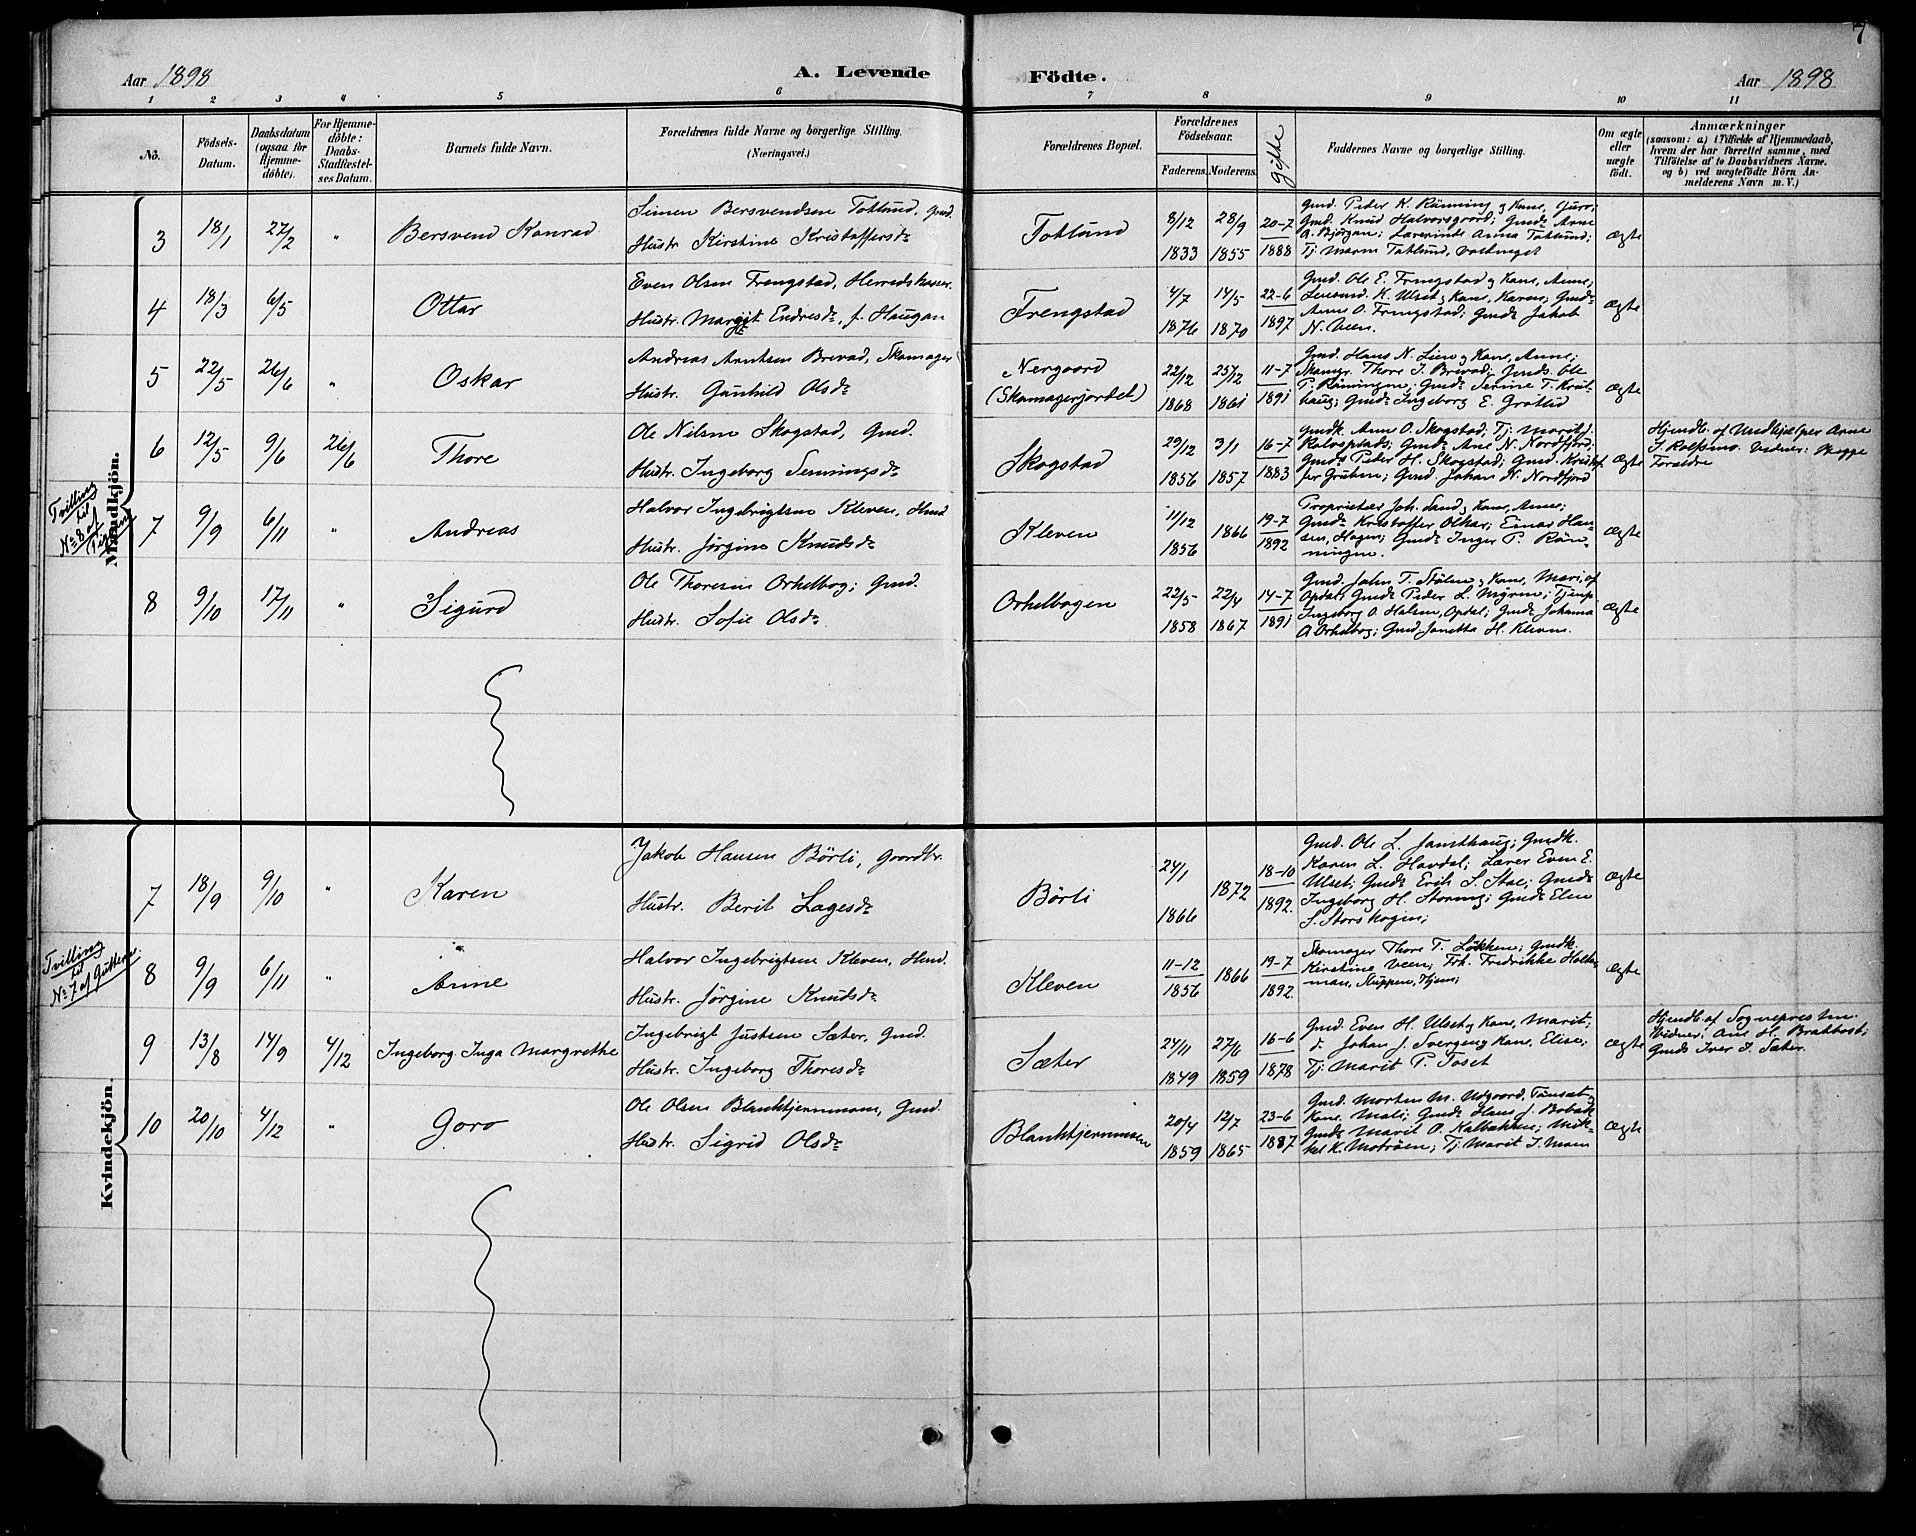 7
Aar 1898
A. Levende Födte.
Aar 1898
1 2 3 4 5 6 7 8 9 10 11
Nô.
Födsels-
Datum.
Daabsdatum
(ogsaa for
Hjemme-
döbte).
For Hjemme-
döbte:
Daabs-
Stadfæstel-
ses Datum.
Barnets fulde Navn.
Forældrenes fulde Navne og borgerlige Stilling.
(Næringsvei.)
Forældrenes Bopæl.
Forældrenes
Födselsaar.
Faderens. Moderens.
Gifte
Faddernes Navne og borgerlige Stilling.
Om ægte
eller
uægte
födt.
Anmærkninger
(saasom: a) i Tilfælde af Hjemmedaab,
hvem der har forrettet samme, med
Tilföielse af to Daabsvidners Navne.
og b) ved uægtefödte Börn An-
melderens Navn m. V.)
Mandkjön.
3 18/1 27/2 " Bersvend Konrad
Simen Bersvendsen Totlund, Gmd.
Hustr. Kirstine Kristoffersdr
Totlund
8/12 1833 28/9 1855 20-7 1888
Gmd. Peder K. Rönning og Kone, Guro;
Gmd. Knud Halvorsgaard; Gmdr Anne
O. Bjørgan; Lærerinde Anna Totlund;
Tj. Marit Totlund,
ægte
4 18/3 6/5 Ottar
Even Olsen Frengstad, Herredskasser.
Hustr. Margit Endresdr, f. Haugan
Frengstad
4/7 1876 14/5 1870 22-6 1897
Gmd. Ole E. Frengstad og Kone, Anne;
K. Ulset og Kone, Karen; Gmdr
Anne O. Frengstad; Gmds Jakob
N. Veen.
ægte
5 22/5 26/6 " Oskar
Andreas Arntsen Brevad, Skomager
Hustr. Gunhild Olsdr
Nergaard
(Skomagerjordet)
22/12 1868 25/12 1861 11-7 1891
Gmd. Hans N. Lien og Kone, Anne;
Skomgr. Thore J. Brevad; Gmds. Ole
P. Röningen; Gmdr Serine T. Krist-
haug; Gmdr Ingeborg E. Grøtlid
ægte
6 12/5 9/6 26/6 Thore
Ole Nilsen Skogstad, Gmd.
Hustr. Ingeborg Henningsdr
Skogstad
29/12 1856 3/1 1857 16-7 1883
Gmdk. Anne O. Skogstad; Tj. Marit J.
Kalvsplads; Gmdr Ane N. Nordfjord;
Gmds Peder H. Skogstad; Gmd. Kristof-
fer Gruben; Gmd. Johan N. Nordfjord
ægte
Hjemdb. af Undkjælper Anne
J. Rolfsmo. Vidner: Begge
Forældre
Tvilling
til
No 8 af
Pigerne
7 9/9 6/11 " Andreas
Halvor Ingebrigtsen Kleven, Hmd
Hustr. Jörgine Knudsdr
Kleven
11/12 1856 1866 19-7 1892
Proprietær Joh. Sand og Kone, Anne;
Gmds Kristoffer Olkar; Einar Han-
sen, Hagen; Gmdr Inger P. Rön-
ningen.
ægte
8 9/10 17/11 " Sigurd
Ole Thoresen Orkelbog; Gmd.
Hustr. Sofie Olsdr
Orkelbogen
22/5 1858 22/4 1867 14-7 1891
Gmd. John T. Stölen og Kone, Mari, af
Opdal; Gmds Peder L. Myrmo; Tjenp.
Ingeborg O. Halsen, Opdal; Gmdr Johanna
A Orkelbog; Gmd. Janetta H. Kleven.
ægte
Kvindekjön.
7 18/9 9/10 " Karen
Jakob Hansen Börli, Gaardbr.
Hustr. Berit Lagesdr
Börli
24/1 1866 1872 18-10 1892.
Gmd. Ole L. Jamthaug; Gmdk.
Karen L. Havdal; Lærer Even E.
Ulset; Gmds Erik L. Stai; Gmdr
Ingeborg H. Storeng; Gmdr Elen
S. Storskogen;
ægte
Tvilling
til
No 7 af Guttene
8 9/9 6/11 " Anne
Halvor Ingebrigtsen Kleven, Hmd.
Hustr. Jörgine Knudsdr
Kleven
11-12 1856 1866 19-7 1892.
Skomager Thore T. Lökken; Gmdk.
Kirstine Veen; Frk. Fredrikke Holter-
man, Stuppen, Hjem;
ægte
9 13/8 14/9 4/12 Ingeborg Inga Margrethe
Ingebrigt Justsen Sæter, Gmd.
Hustr. Ingeborg Thoresdr
Sæter
24/11 1849 27/6 1859 16-6 1878
Gmd. Even H. Ulset og Kone, Marit;
d. Johan J. Tvergeng Kone, Elise;
Tj. Marit P. Toset
ægte
Hjemdb. af Sognepresten.
Vidner: Ane H. Brakbost;
Gmds Iver I. Sæter.
10 20/10 4/12 " Goro
Ole Olsen Blanktjernmoen, Gmd.
Hustr. Sigrid Olsdr
Blanktjernmoen
20/4 1859 12/7 1865 23-6 1887
Gmd. Morten M. Udgaard, Tönset og
Kone Mali; Gmds Hans J. Bobak
Gmdr Marit O. Kalbakken; Mik-
kel K. Motröen; Tj. Marit J. Moen
ægte